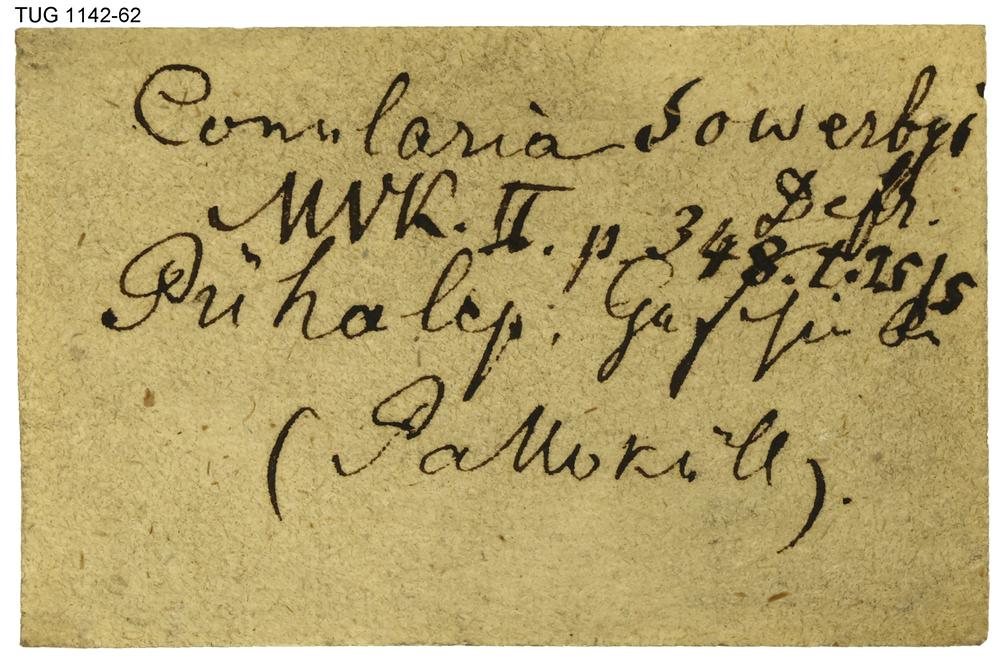 TUG 1142-62
Conularia Sowerbyi
Defr.
MVK. II. p. 348. t. 25/5
Pühalep.
(Pallokūll).